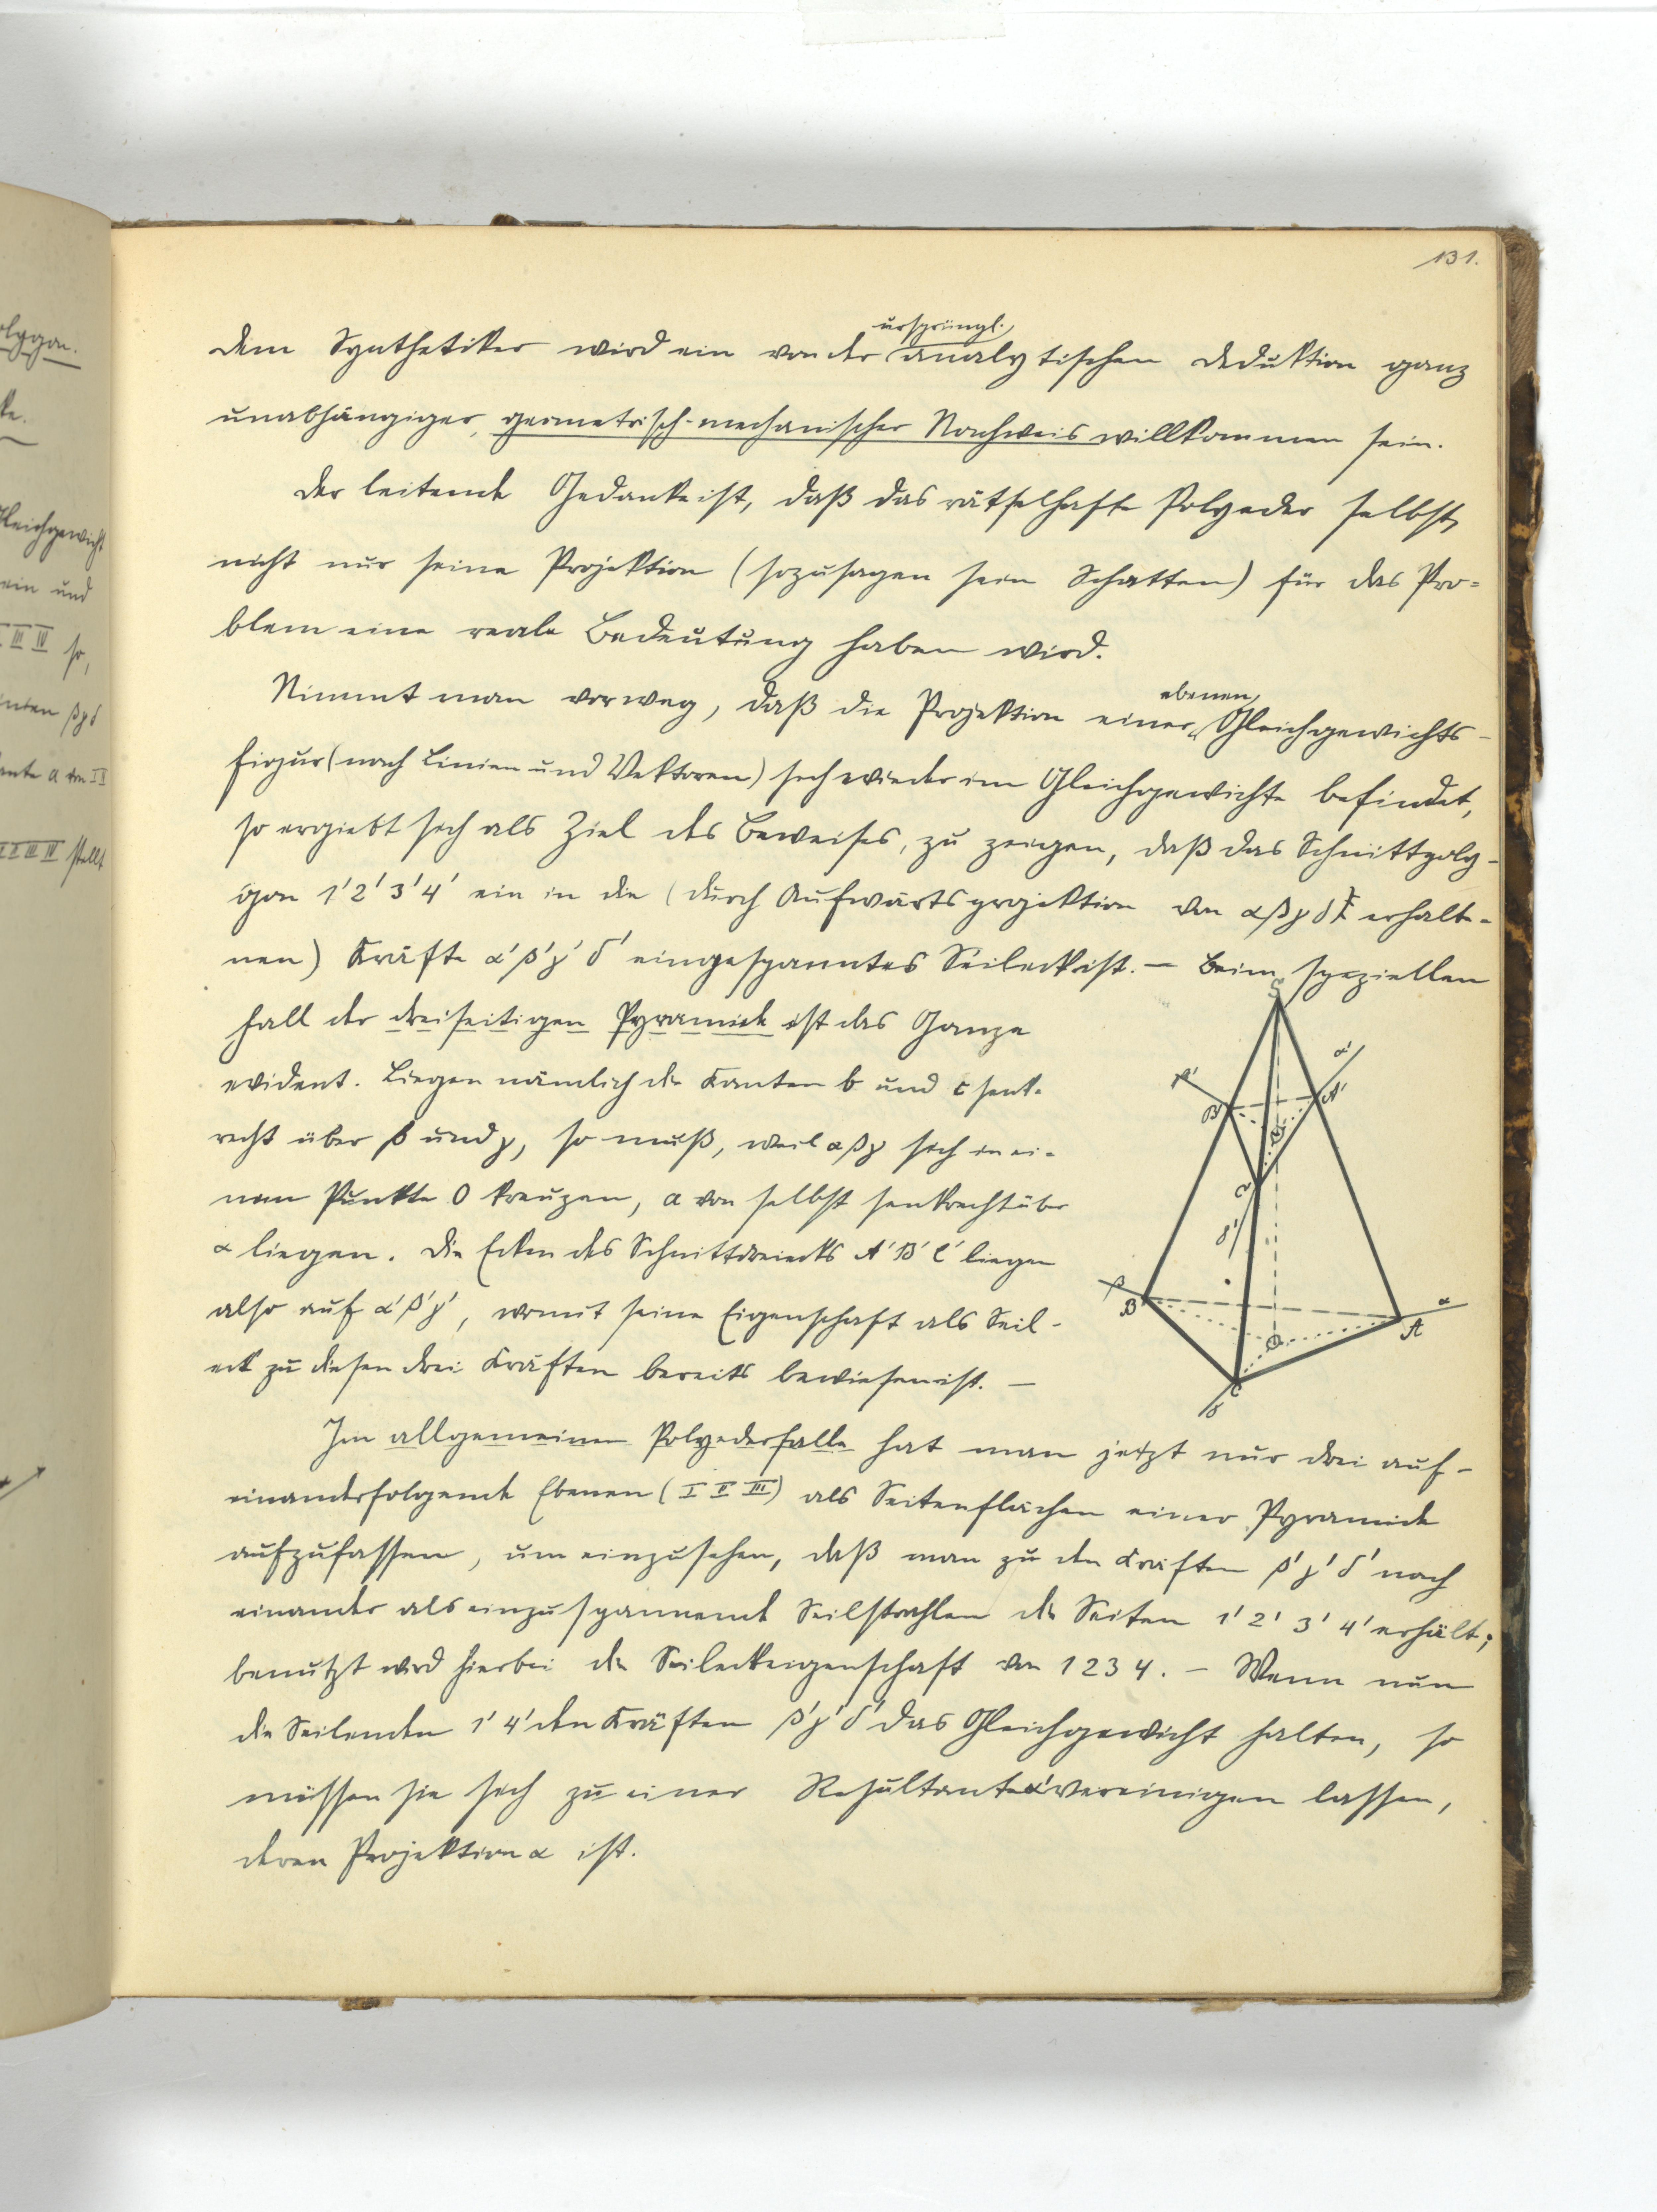 131.
dem Synthetiker wird ein von der ursprüngl. analytischen Deduktion ganz
unabhängiger, geometrisch-mechanischer Nachweis willkommen sein.
Der leitende Gedanke ist, daß das rätselhafte Polyeder selbst,
nicht nur seine Projektion (sozusagen sein Schatten) für das Pro-
blem eine reale Bedeutung haben wird.
Nimmt man vorweg, daß die Projektion einer ebenen Gleichgewichts-
figur (nach Linien und Vektoren) sich wieder im Gleichgewichte befindet,
so ergiebt sich als Ziel des Beweises, zu zeigen, daß das Schnittpoly-
gon 1' 2' 3' 4' ein in die (durch Aufwärtsprojektion von αβγδ erhalte-
nen) Kräfte α'β'γ'δ' eingespanntes Seileck ist. — Beim speziellen
Fall der dreiseitigen Pyramide ist das Ganze
evident. Liegen nämlich die Kanten b und c senk-
recht über β und γ, so muß, weil αβγ sich in ei-
nem Punkte O kreuzen, a von selbst senkrecht über
α liegen. Die Ecken des Schnittdreiecks A'B'C' liegen
also auf α'β'γ', womit seine Eigenschaft als Seil-
eck zu diesen drei Kräften bereits bewiesen ist. —
Im allgemeinen Polyederfalle hat man jetzt nur drei auf-
einanderfolgende Ebenen (I II III) als Seitenflächen einer Pyramide
aufzufassen, um einzusehen, daß man zu den Kräften β'γ'δ' nach
einander als einzuspannende Seilstrahlen die Seiten 1' 2' 3' 4' erhält;
benutzt wird hierbei die Seileckeigenschaft von 1 2 3 4. — Wenn nun
die Seilenden 1' 4' den Kräften β'γ'δ' das Gleichgewicht halten, so
müssen sie sich zu einer Resultante α' vereinigen lassen,
deren Projektion α ist.
S
α'
β'
B'
A'
C'
β
B
O
A
α
C
olygon.
ke.
Gleichgewicht
ein und
III IV so,
nten βγδ
ante a von I II
I II III IV stellt